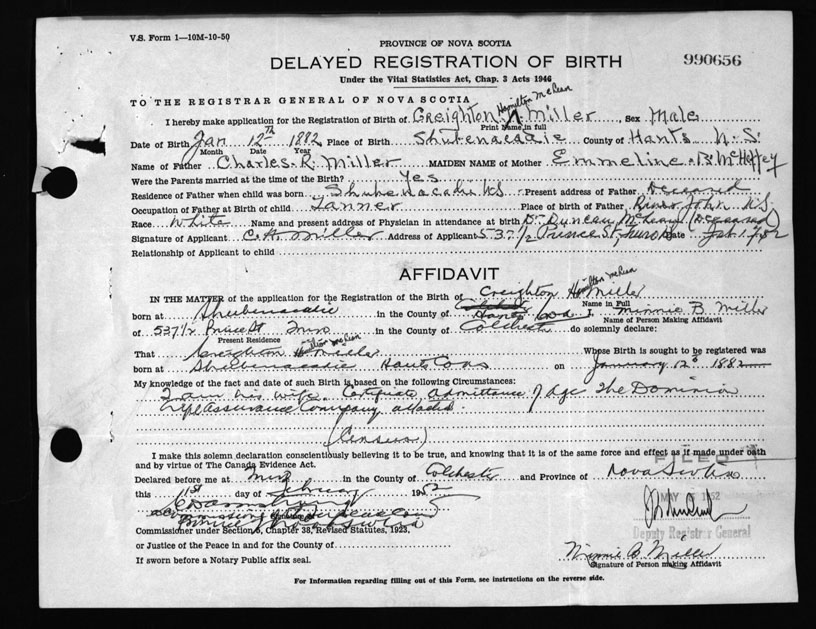 V.S. Form 1—10M-10-50
PROVINCE OF NOVA SCOTIA
DELAYED REGISTRATION OF BIRTH
990656
Under the Vital Statistics Act, Chap. 3 Acts 1946
TO THE REGISTRAR GENERAL OF NOVA SCOTIA
Hamilton McLean
I hereby make application for the Registration of Birth of Creighton Miller, Sex Male
Print Name in full
Date of Birth Jan 12th 1882 Place of Birth Shubenacadie County of Hants N.S.
Month Date Year
Name of Father Charles R. Miller MAIDEN NAME of Mother Emmeline B. McHeffey
Were the Parents married at the time of the Birth? Yes
Residence of Father when child was born Shubenacadie N.S Present address of Father Deceased
Occupation of Father at Birth of child Tanner Place of birth of Father River John N.S.
Race White Name and present address of Physician in attendance at birth Dr Duncan McLean (Deceased)
Signature of Applicant C.H. Miller Address of Applicant 537 1/2 Prince St. Truro Date Feb. 52
Relationship of Applicant to child
AFFIDAVIT
Hamilton McLean
IN THE MATTER of the application for the Registration of the Birth of Creighton H. Miller
Name in Full
born at Shubenacadie in the County of Hants I, Minnie B. Miller
Name of Person Making Affidavit
of 537 1/2 Prince St Truro in the County of Colchester do solemnly declare:
Present Residence
That Creighton Hamilton McLean Miller Whose Birth is sought to be registered was
born at Shubenacadie Hants Co on January 12 1882
My knowledge of the fact and date of such Birth is based on the following Circumstances:
I am his wife. Certificate Admittance of Age The Dominion
Life Assurance Company attached.
(Census)
I make this solemn declaration conscientiously believing it to be true, and knowing that it is of the same force and effect as if made under oath
and by virtue of The Canada Evidence Act.
FILED
Declared before me at Truro in the County of Colchester and Province of Nova Scotia
this 11th day of February 1952
MAY 1952
Deputy Registrar General
Commissioner under Section 5, Chapter 38, Revised Statutes, 1923,
or Justice of the Peace in and for the County of
Minnie B. Miller
If sworn before a Notary Public affix seal.
Signature of Person making Affidavit
For Information regarding filling out of this Form, see instructions on the reverse side.